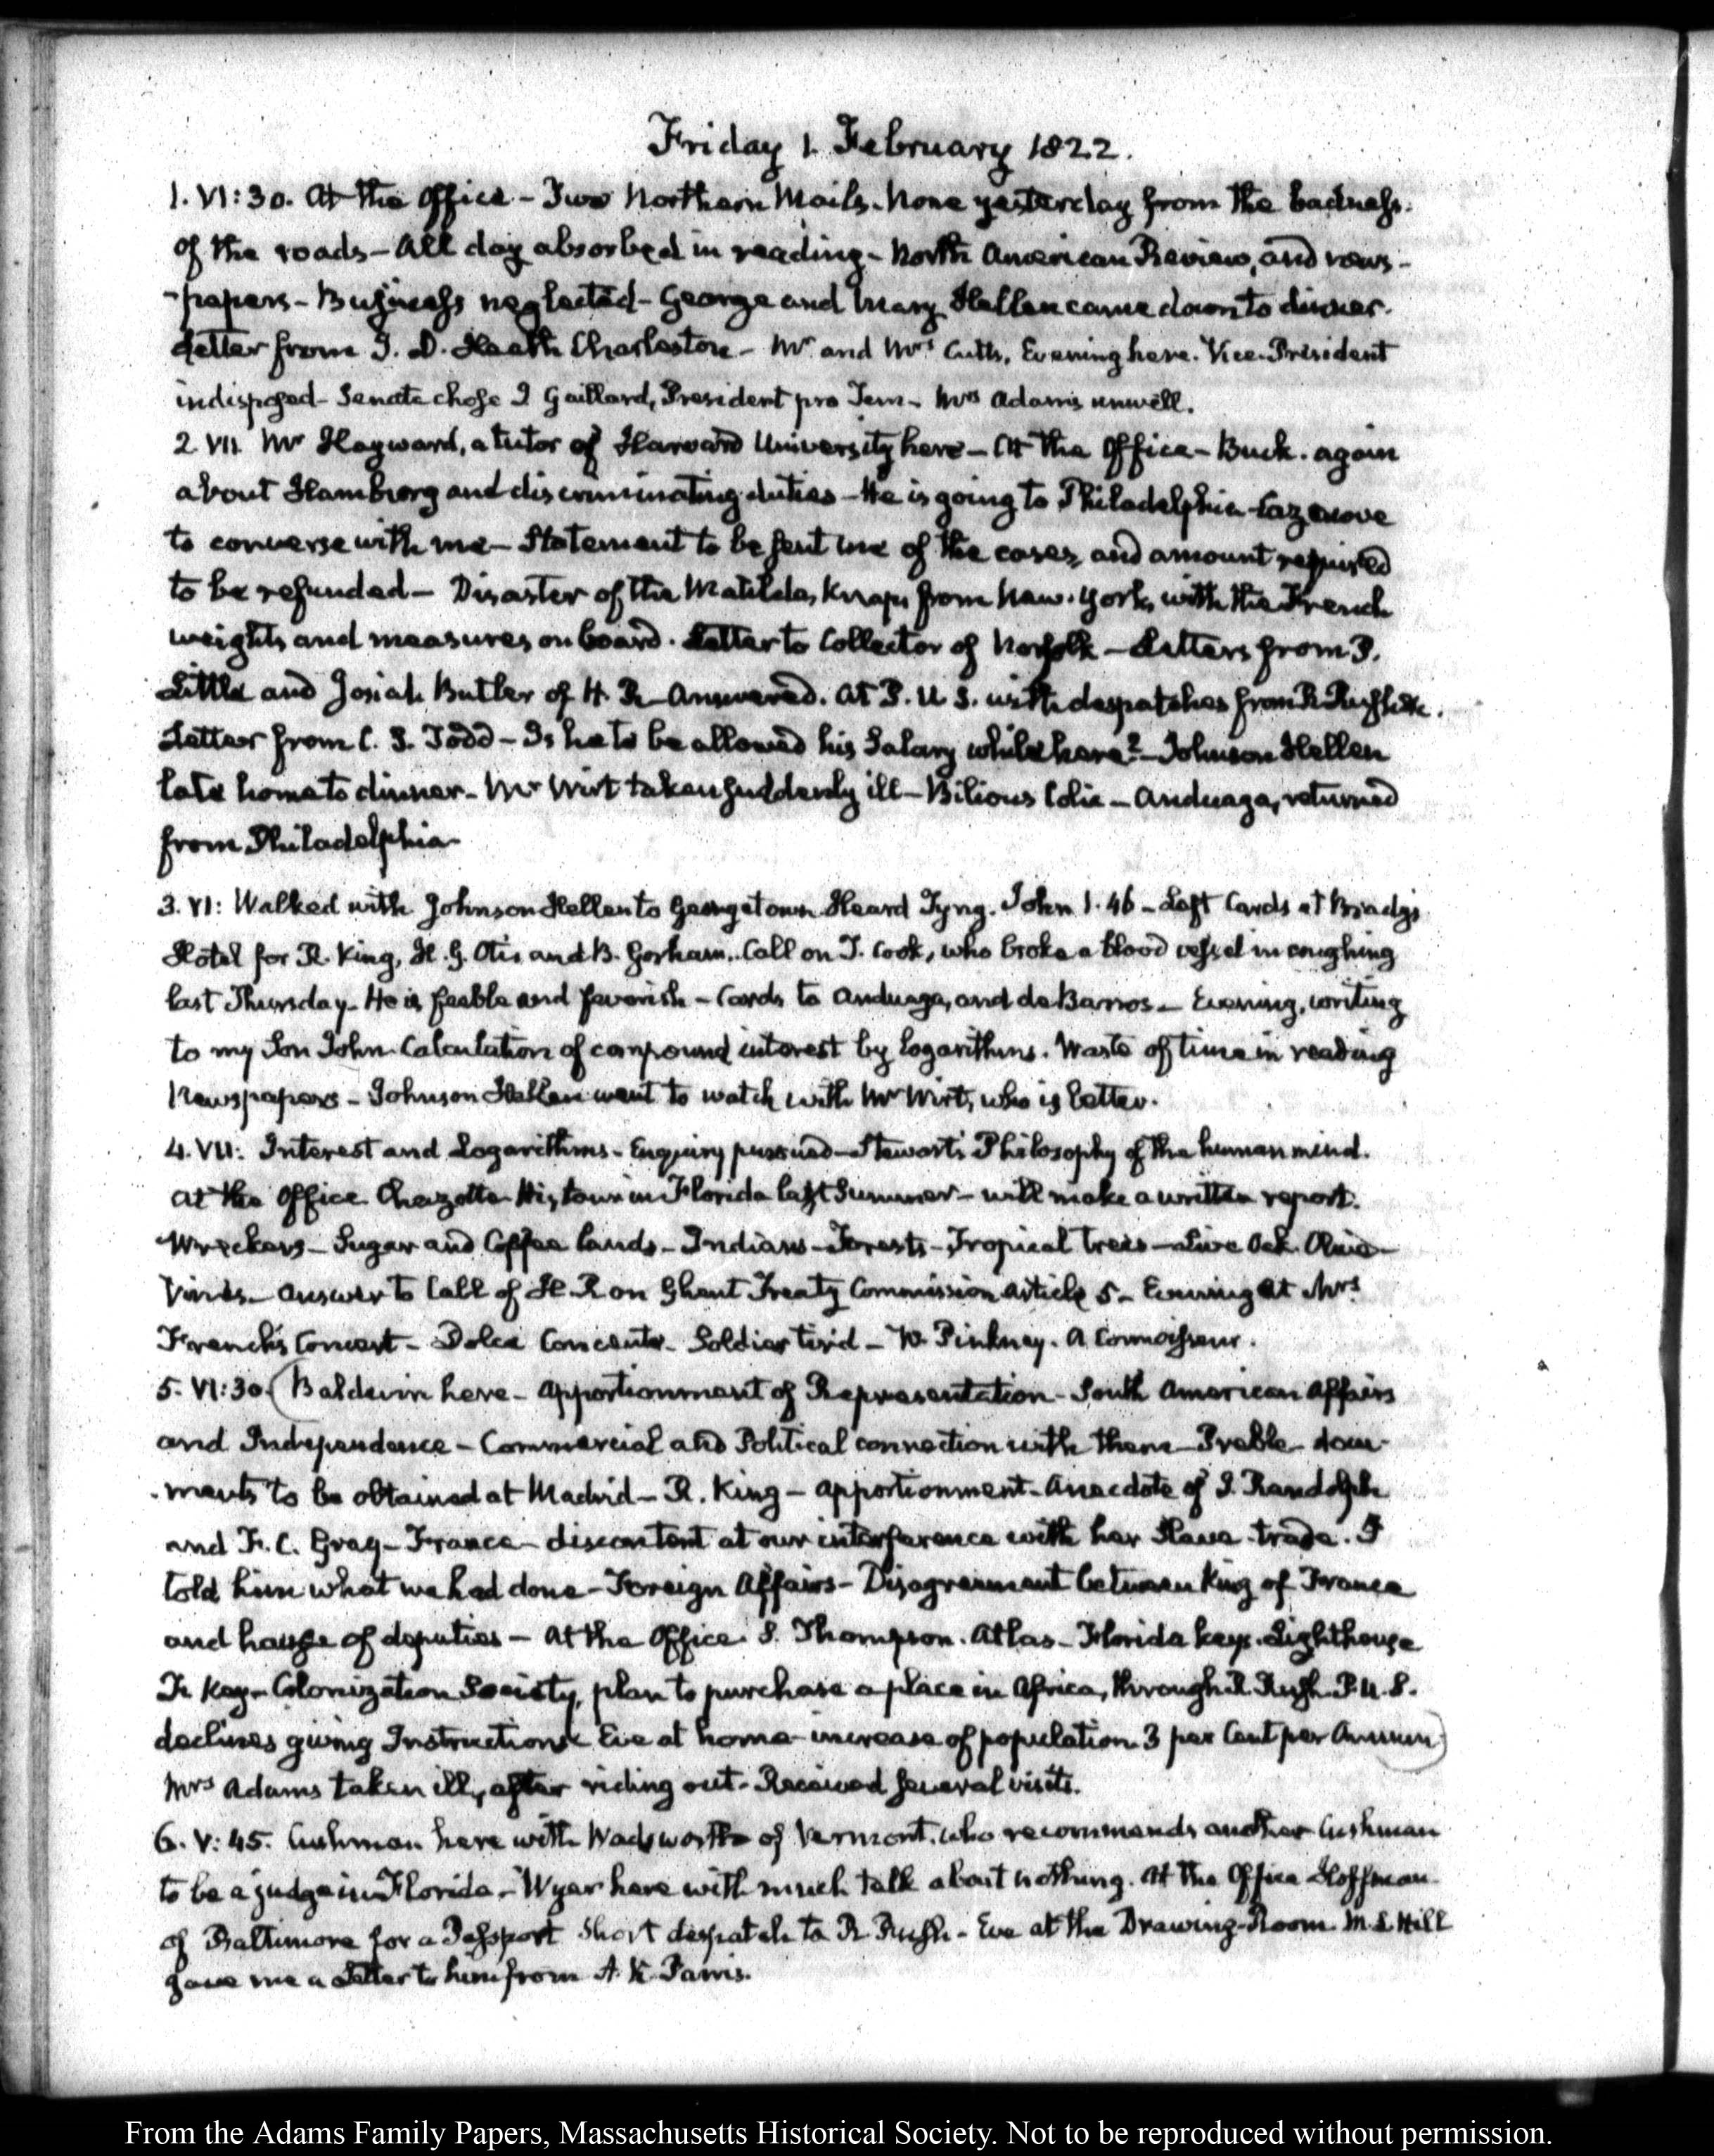 Friday 1. February 1822.
1. VI:30. At the Office - Two Northern Mails. None yesterday from the badness.
of the roads - All day absorbed in reading - North American Review, and news-
-papers - Business neglected - George and Mary Hellen came down to dinner.
Letter from J. D. Heath Charleston - Mr and Mrs Cutts, Evening here. Vice-President
indisposed - Senate chose J Gaillard, President pro Tem - Mrs Adams unwell.
2. VII. Mr Hayward, a tutor of Harvard University here - At the Office - Buck. again
about Hamburg and discriminating duties - He is going to Philadelphia - Cazenove
to converse with me - Statement to be sent me of the cases, and amount required
to be refunded - Disaster of the Matilda, Knaps from New-York, with the French
weights and measures on board. Letter to Collector of Norfolk - Letters from P.
Little and Josiah Butler of H. R - Answered. At P. U S. with despatches from R Rush &c.
Letter from C. S. Todd - Is he to be allowed his Salary while here? - Johnson Hellen
late home to dinner - Mr Wirt taken suddenly ill - Bilious Colic - Anduaga, returned
from Philadelphia -
3. VI: Walked with Johnson Hellen to Georgetown. Heard Tyng. John 1. 46 - Left Cards at
Hotel for R. King, H. G. Otis and B. Gorham. Call on D. Cook, who broke a blood vessel in coughing
last Thursday - He is feeble and feverish - Cards to Anduaga, and de Barros - Evening, writing
to my Son John. Calculation of compound interest by logarithms. Waste of time in reading
Newspapers - Johnson Hellen went to watch with Mr Wirt, who is better.
4. VII: Interest and Logarithms - Enquiry pursued - Stewart's Philosophy of the human mind.
At the Office Chazotte. His tour in Florida last Summer - will make a written report.
Wreckers - Sugar and Coffee lands - Indians - Forests - Tropical trees - Live Oak. Olive -
Vines - Answer to Call of H. R on Ghent Treaty Commission Article 5 - Evening at Mrs
French's Concert - Dolce Concento - Soldier tir'd - W. Pinkney. A Connoisseur.
5. VI:30. (Baldwin here - Apportionment of Representation - South American Affairs
and Independence - Commercial and Political connection with them - Preble - docu-
-ments to be obtained at Madrid - R. King - Apportionment - Anecdote of J. Randolph
and F. C. Gray - France - discontent at our interference with her Slave-trade. I
told him what we had done - Foreign Affairs - Disagreement between King of France
and house of deputies - At the Office. S. Thompson. Atlas - Florida keys. Lighthouse
F. Key - Colonization Society, plan to purchase a place in Africa, through R Rush. P. U. S.
declines giving Instructions. Eve at home - increase of population 3 per Cent per Annum)
Mrs Adams taken ill, after riding out - Received several visits.
6. V: 45. Cushman here with Wadsworth of Vermont, who recommends another Cushman
to be a judge in Florida - Wyer here with much talk about nothing. At the Office Hoffman
of Baltimore for a Passport Short despatch to R. Rush - Eve at the Drawing-Room. M. L Hill
gave me a Letter to him from A. K. Parris.
From the Adams Family Papers, Massachusetts Historical Society. Not to be reproduced without permission.